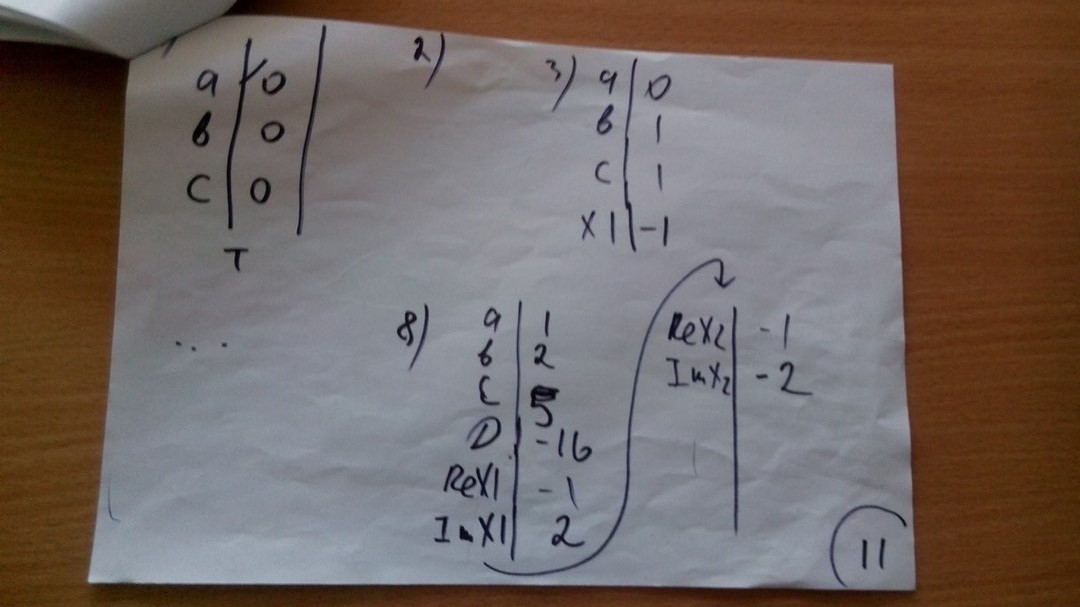 a | 0
в | 0
C | 0
T
2)
3) a | 0
в | 1
c | 1
X1 | -1
...
8) a | 1
в | 2
C | 5
D | -16
ReX1 | -1
ImX1 | 2
ReX2 | -1
ImX2 | -2
11